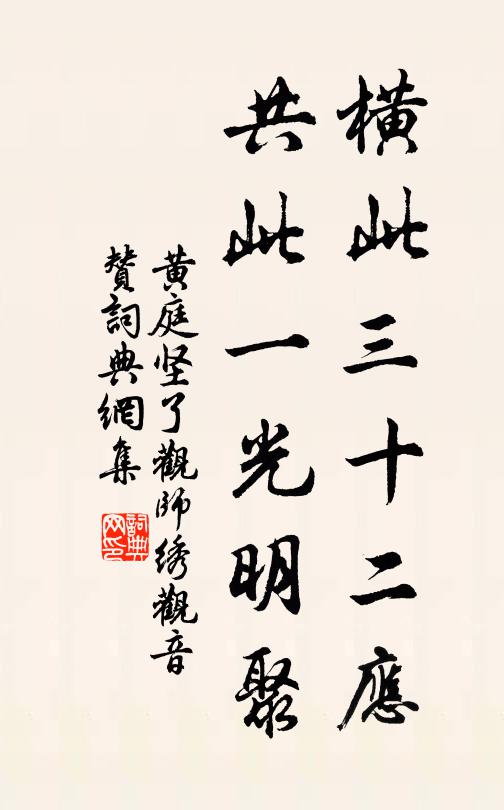 橫此三十二應
共此一光明聚
黄庭坚了觀師绣觀音
贊詞典網集
詞典网印